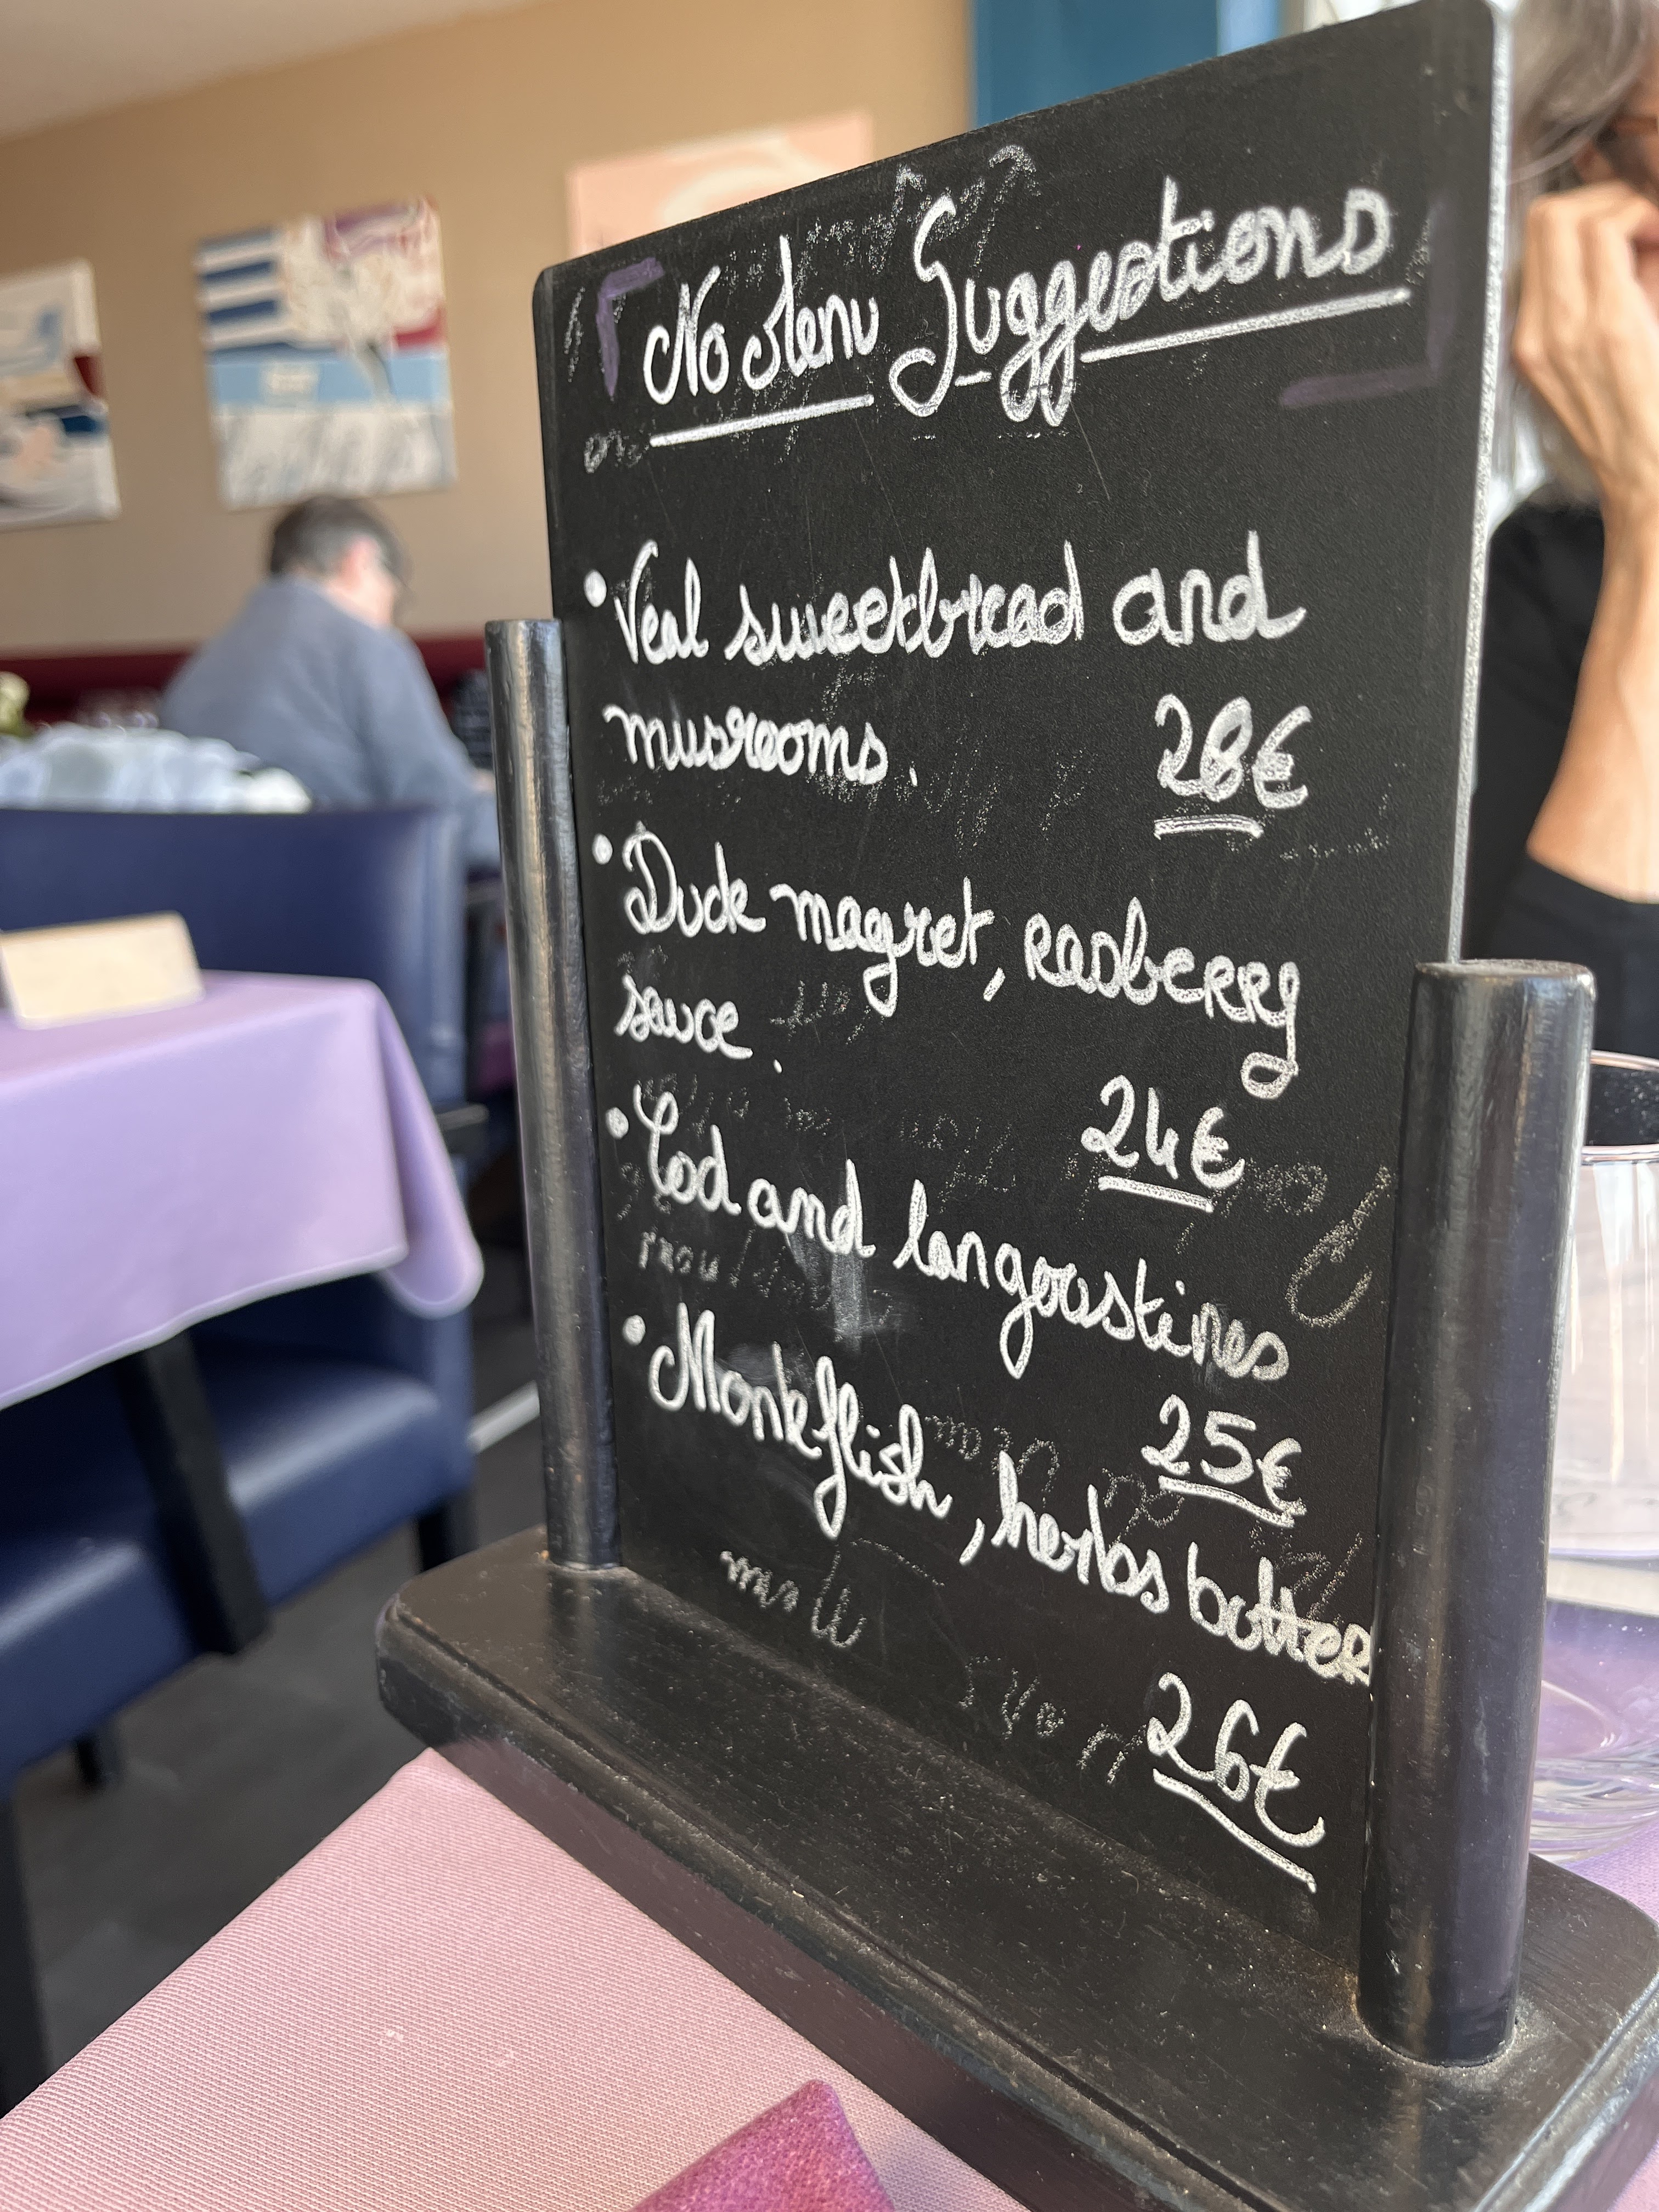 No Menu Suggestions
• Veal sweetbread and
musrooms.
28€
• Duck magret, rasberry
sauce.
24€
• Cod and langoustines
25€
• Monkflish, herbs butter
26€